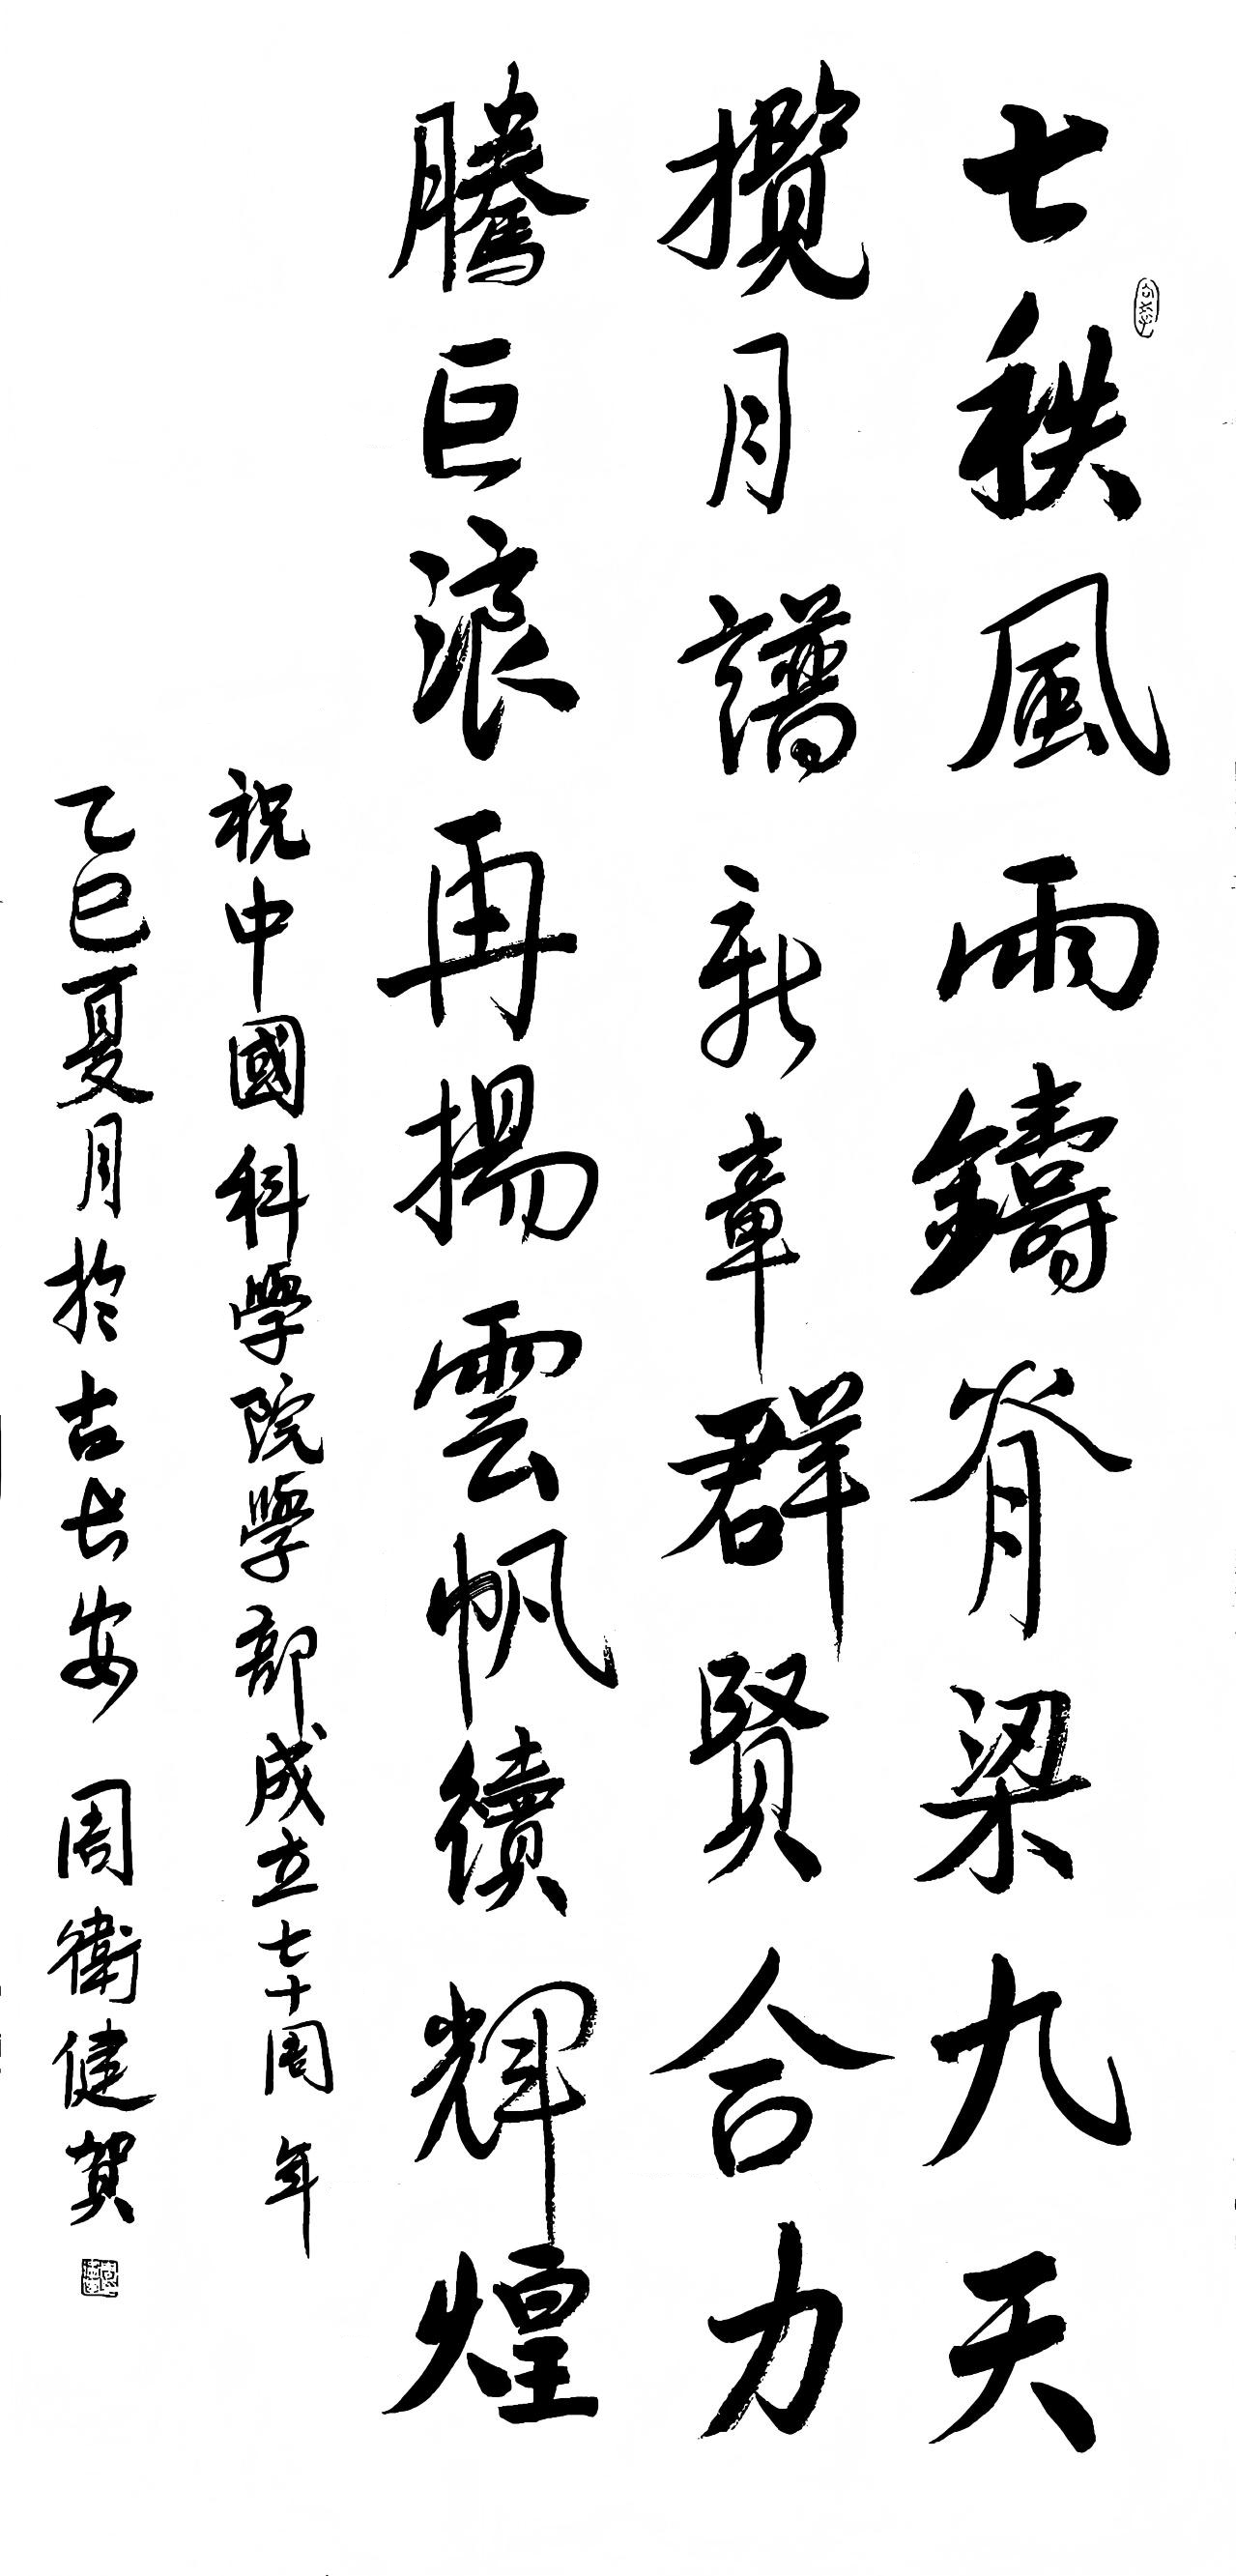 七秩風雨鑄脊梁九天
攬月譜新章群賢合力
騰巨浪再揚雲帆續輝煌
祝中國科學院學部成立七十周年
乙巳夏月於古長安 周衛健賀